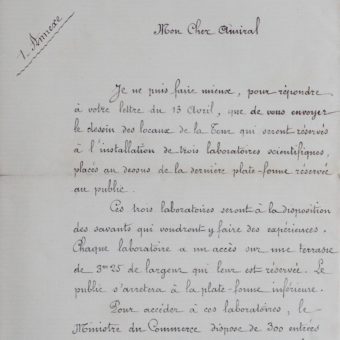 1. Annexe
Mon Cher Amiral
Je ne puis faire mieux, pour répondre
à votre lettre du 13 Avril, que de vous envoyer
le dessin des locaux de la Tour qui seront réservés
à l'installation de trois laboratoires scientifiques,
placés au dessus de la dernière plate-forme réservée
au public.
Ces trois laboratoires seront à la disposition
des savants qui voudront y faire des expériences.
Chaque laboratoire a un accès sur une terrasse
de 3m25 de largeur qui leur est réservée. Le
public s'arretera à la plate-forme inférieure.
Pour accéder à ces laboratoires, le
Ministre du Commerce dispose de 300 entrées